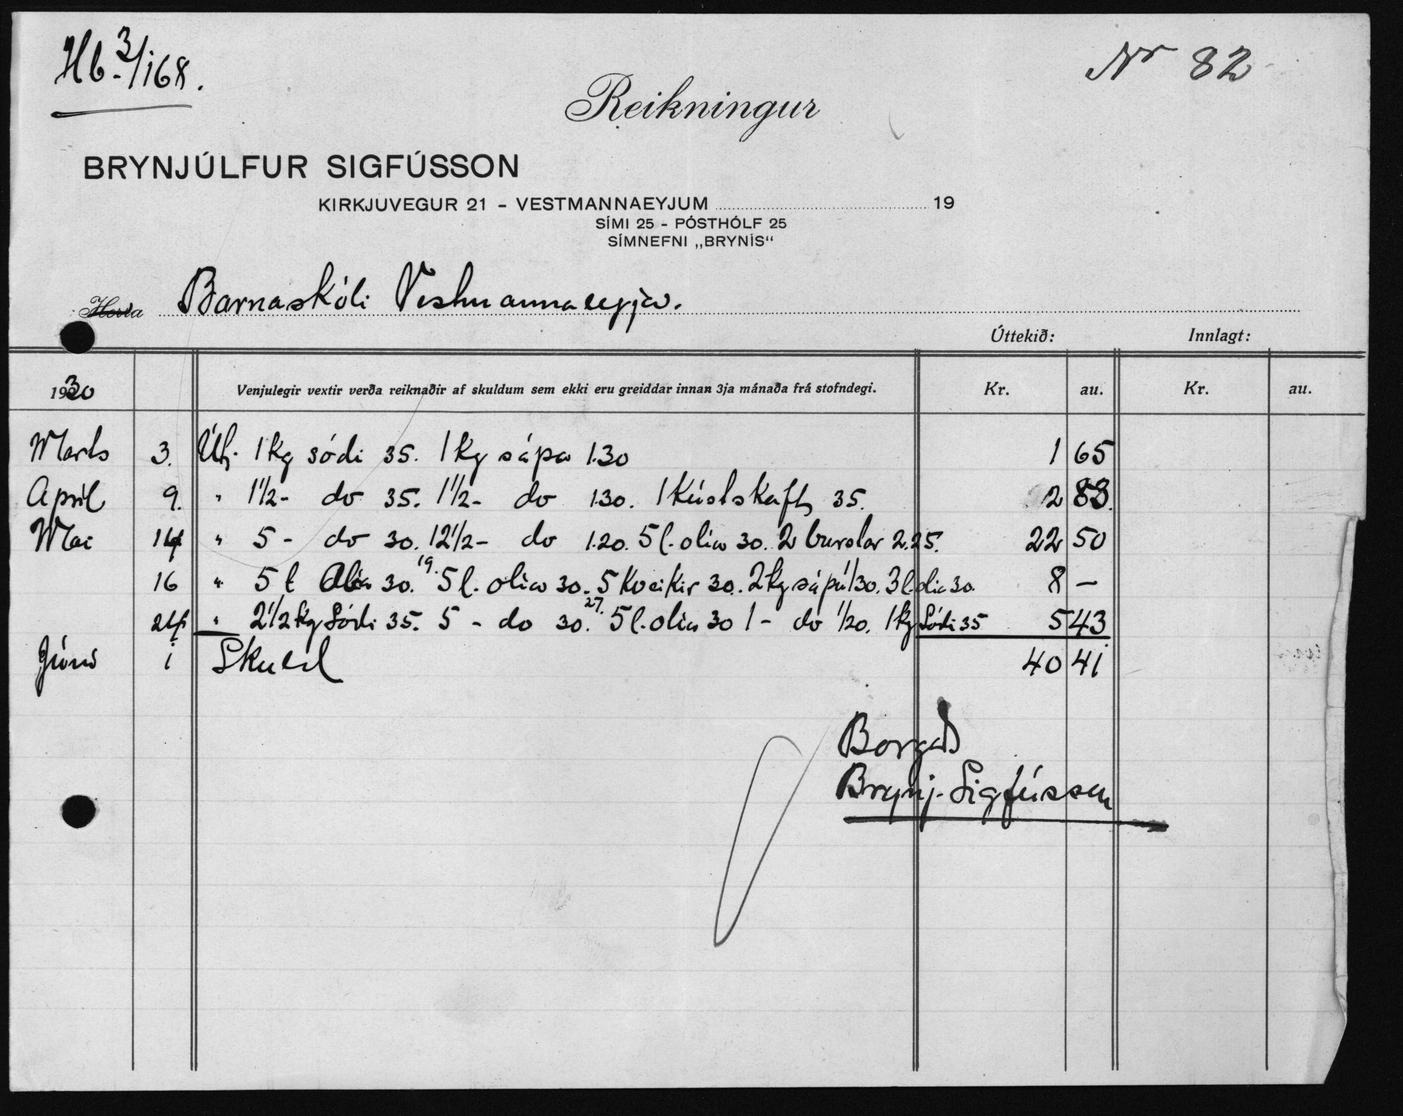 Hb. 3/168.
Nr 82
Reikningur
BRYNJÚLFUR SIGFÚSSON
KIRKJUVEGUR 21 - VESTMANNAEYJUM 19
SÍMI 25 - PÓSTHÓLF 25
SÍMNEFNI „BRYNÍS“
Herra Barnaskóli Vestmannaeyja.
Úttekið: Innlagt:
1930 Venjulegir vextir verða reiknaðir af skuldum sem ekki eru greiddar innan 3ja mánaða frá stofndegi. Kr. au. Kr. au.
Marts 3. Út. 1 kg sódi 35. 1 kg sápa 1.30 1 65
Apríl 9. " 1 1/2 - do 35. 1 1/2 - do 130. 1 Kústskaft 35. 2 83
Mai 14 " 5 - do 30. 12 1/2 - do 1.20. 5 l. olia 30. 2 burstar 2.25. 22 50
16 " 5 l olia 30. 19. 5 l. olia 30. 5 Kveikir 30. 2 kg sápa 1/30. 3 l olia 30. 8 —
24 " 2 1/2 kg Sódi 35. 5 - do 30. 27. 5 l. olia 30 1 - do 1/20. 1 kg Sódi 35 5 43
Júní 1 Skuld 40 41
Borgað
Brynj. Sigfússon